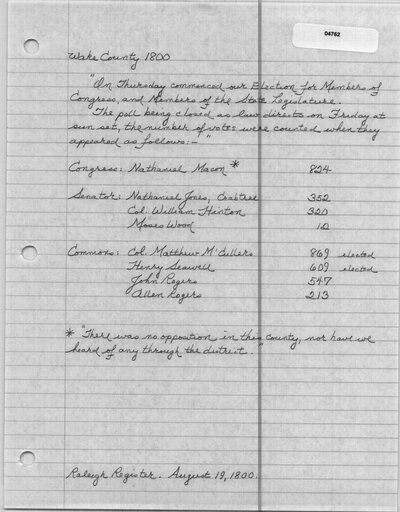 04762
Wake County 1800
"On Thursday commenced our Election for Members of
Congress, and Members of the State Legislature.
The poll being closed as law directs on Friday at
sun set, the number of votes were counted when they
appeared as follows:-"
Congress: Nathaniel Macon * 824
Senator: Nathaniel Jones, Crabtree 352
Col. William Hinton 320
Moses Wood 12
Commons: Col. Matthew McCullers 869 elected
Henry Seawell 609 elected
John Rogers 547
Allen Rogers 213
* "There was no opposition in this county, nor have we
heard of any through the district."
Raleigh Register. August 19, 1800.